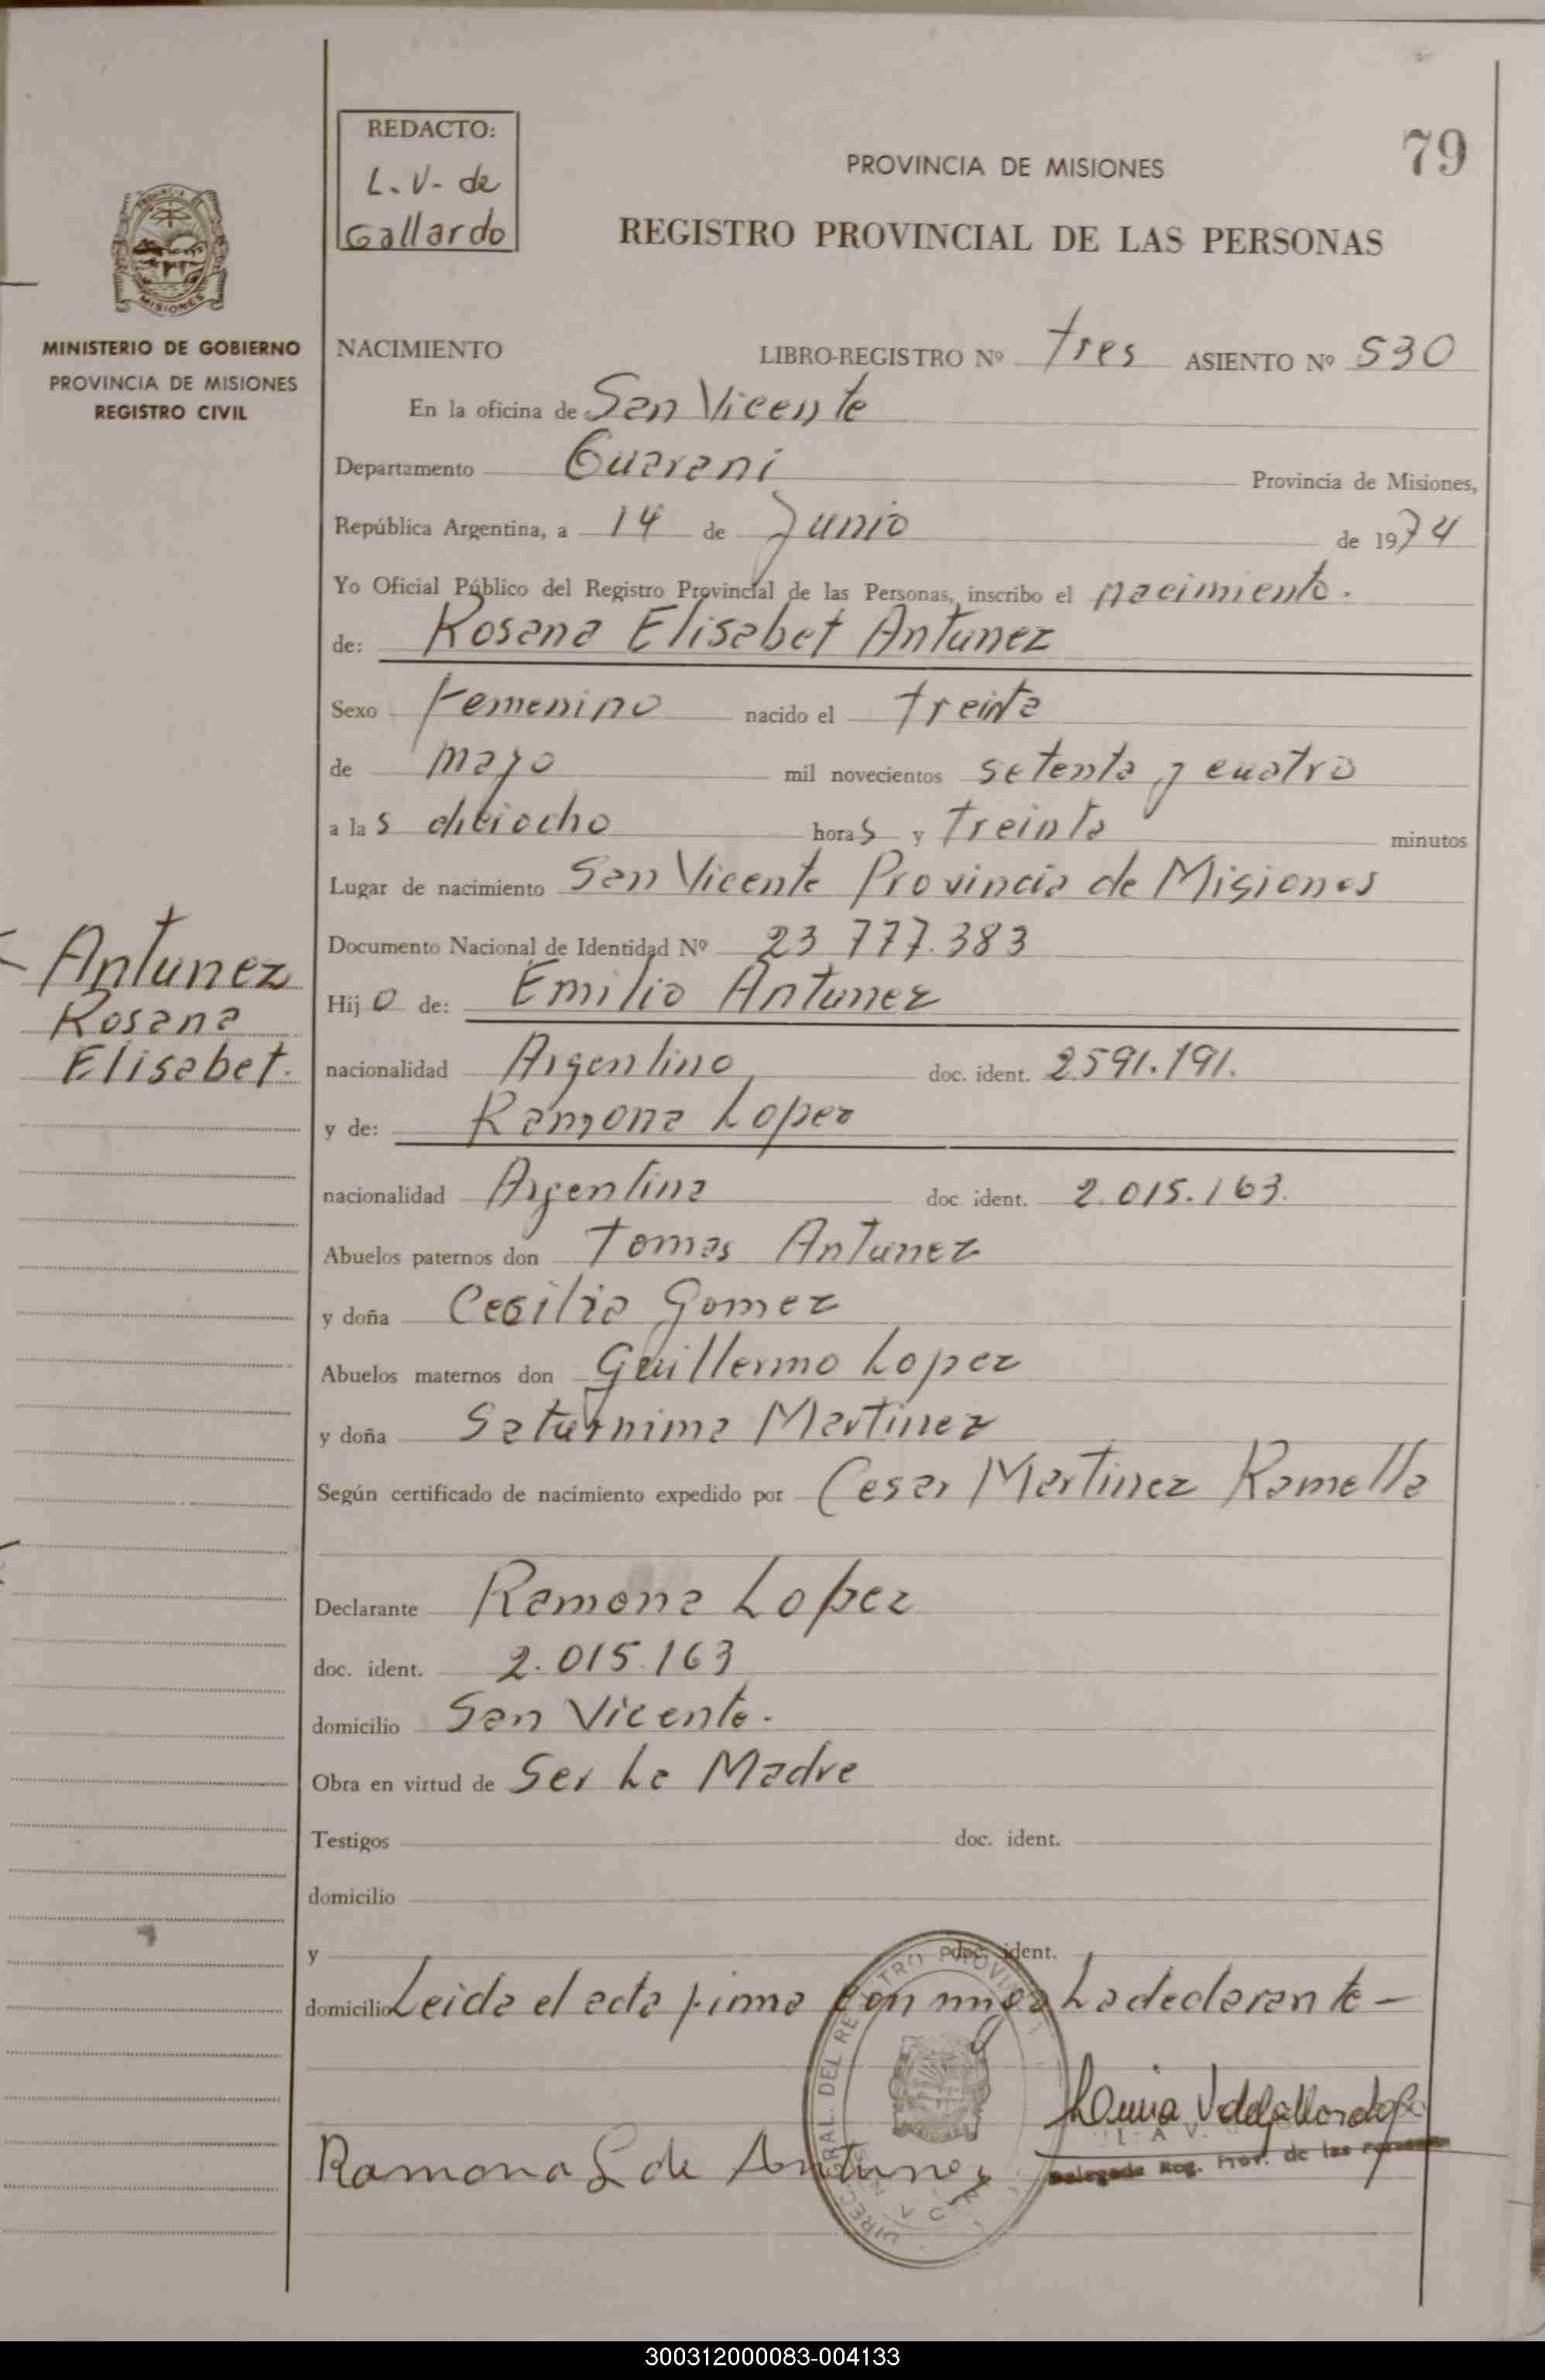 REDACTO:
L. V- de
Gallardo
79
PROVINCIA DE MISIONES
REGISTRO PROVINCIAL DE LAS PERSONAS
PROVINCIA DE
MISIONES
MINISTERIO DE GOBIERNO
PROVINCIA DE MISIONES
REGISTRO CIVIL
NACIMIENTO LIBRO-REGISTRO Nº tres ASIENTO Nº 530
En la oficina de San Vicente
Departamento Guarani Provincia de Misiones,
República Argentina, a 14 de Junio de 1974
Yo Oficial Público del Registro Provincial de las Personas, inscribo el nacimiento.
de: Rosana Elisabet Antunez
Sexo Femenino nacido el treinta
de mayo mil novecientos setenta y cuatro
a las dieciocho horas y treinta minutos
Lugar de nacimiento San Vicente Provincia de Misiones
Documento Nacional de Identidad Nº 23 777.383
Antunez
Rosana
Elisabet.
Hijo de: Emilio Antunez
nacionalidad Argentino doc. ident. 2591.191.
y de: Ramona Lopez
nacionalidad Argentina doc. ident. 2.015.163.
Abuelos paternos don Tomas Antunez
y doña Cecilia Gomez
Abuelos maternos don Guillermo Lopez
y doña Saturnima Martinez
Según certificado de nacimiento expedido por Cesar Martinez Ramella
Declarante Ramona Lopez
doc. ident. 2.015.163
domicilio San Vicente.
Obra en virtud de Ser La Madre
Testigos doc. ident.
domicilio
y doc. ident.
domicilio Leida el acta firma con migo La declarante -
DIREC. GRAL. DEL REGISTRO PROVINCIAL
Ramona L de Antunez
Delegada Reg. Prov. de las Personas
300312000083-004133